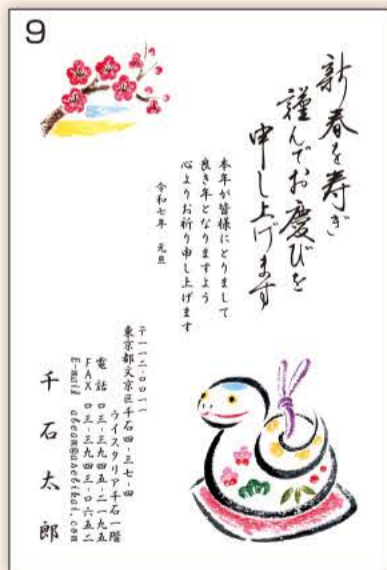 9
新春を寿ぎ
謹んでお慶びを
申し上げます
本年が皆様にとりまして
良き年となりますよう
心よりお祈り申し上げます
令和七年 元旦
〒一一二-〇〇一一
東京都文京区千石四-三七-四
ウイスタリア千石一階
電話 〇三-三九四五-二一九五
FAX 〇三-三九四三-〇六五二
千石太郎